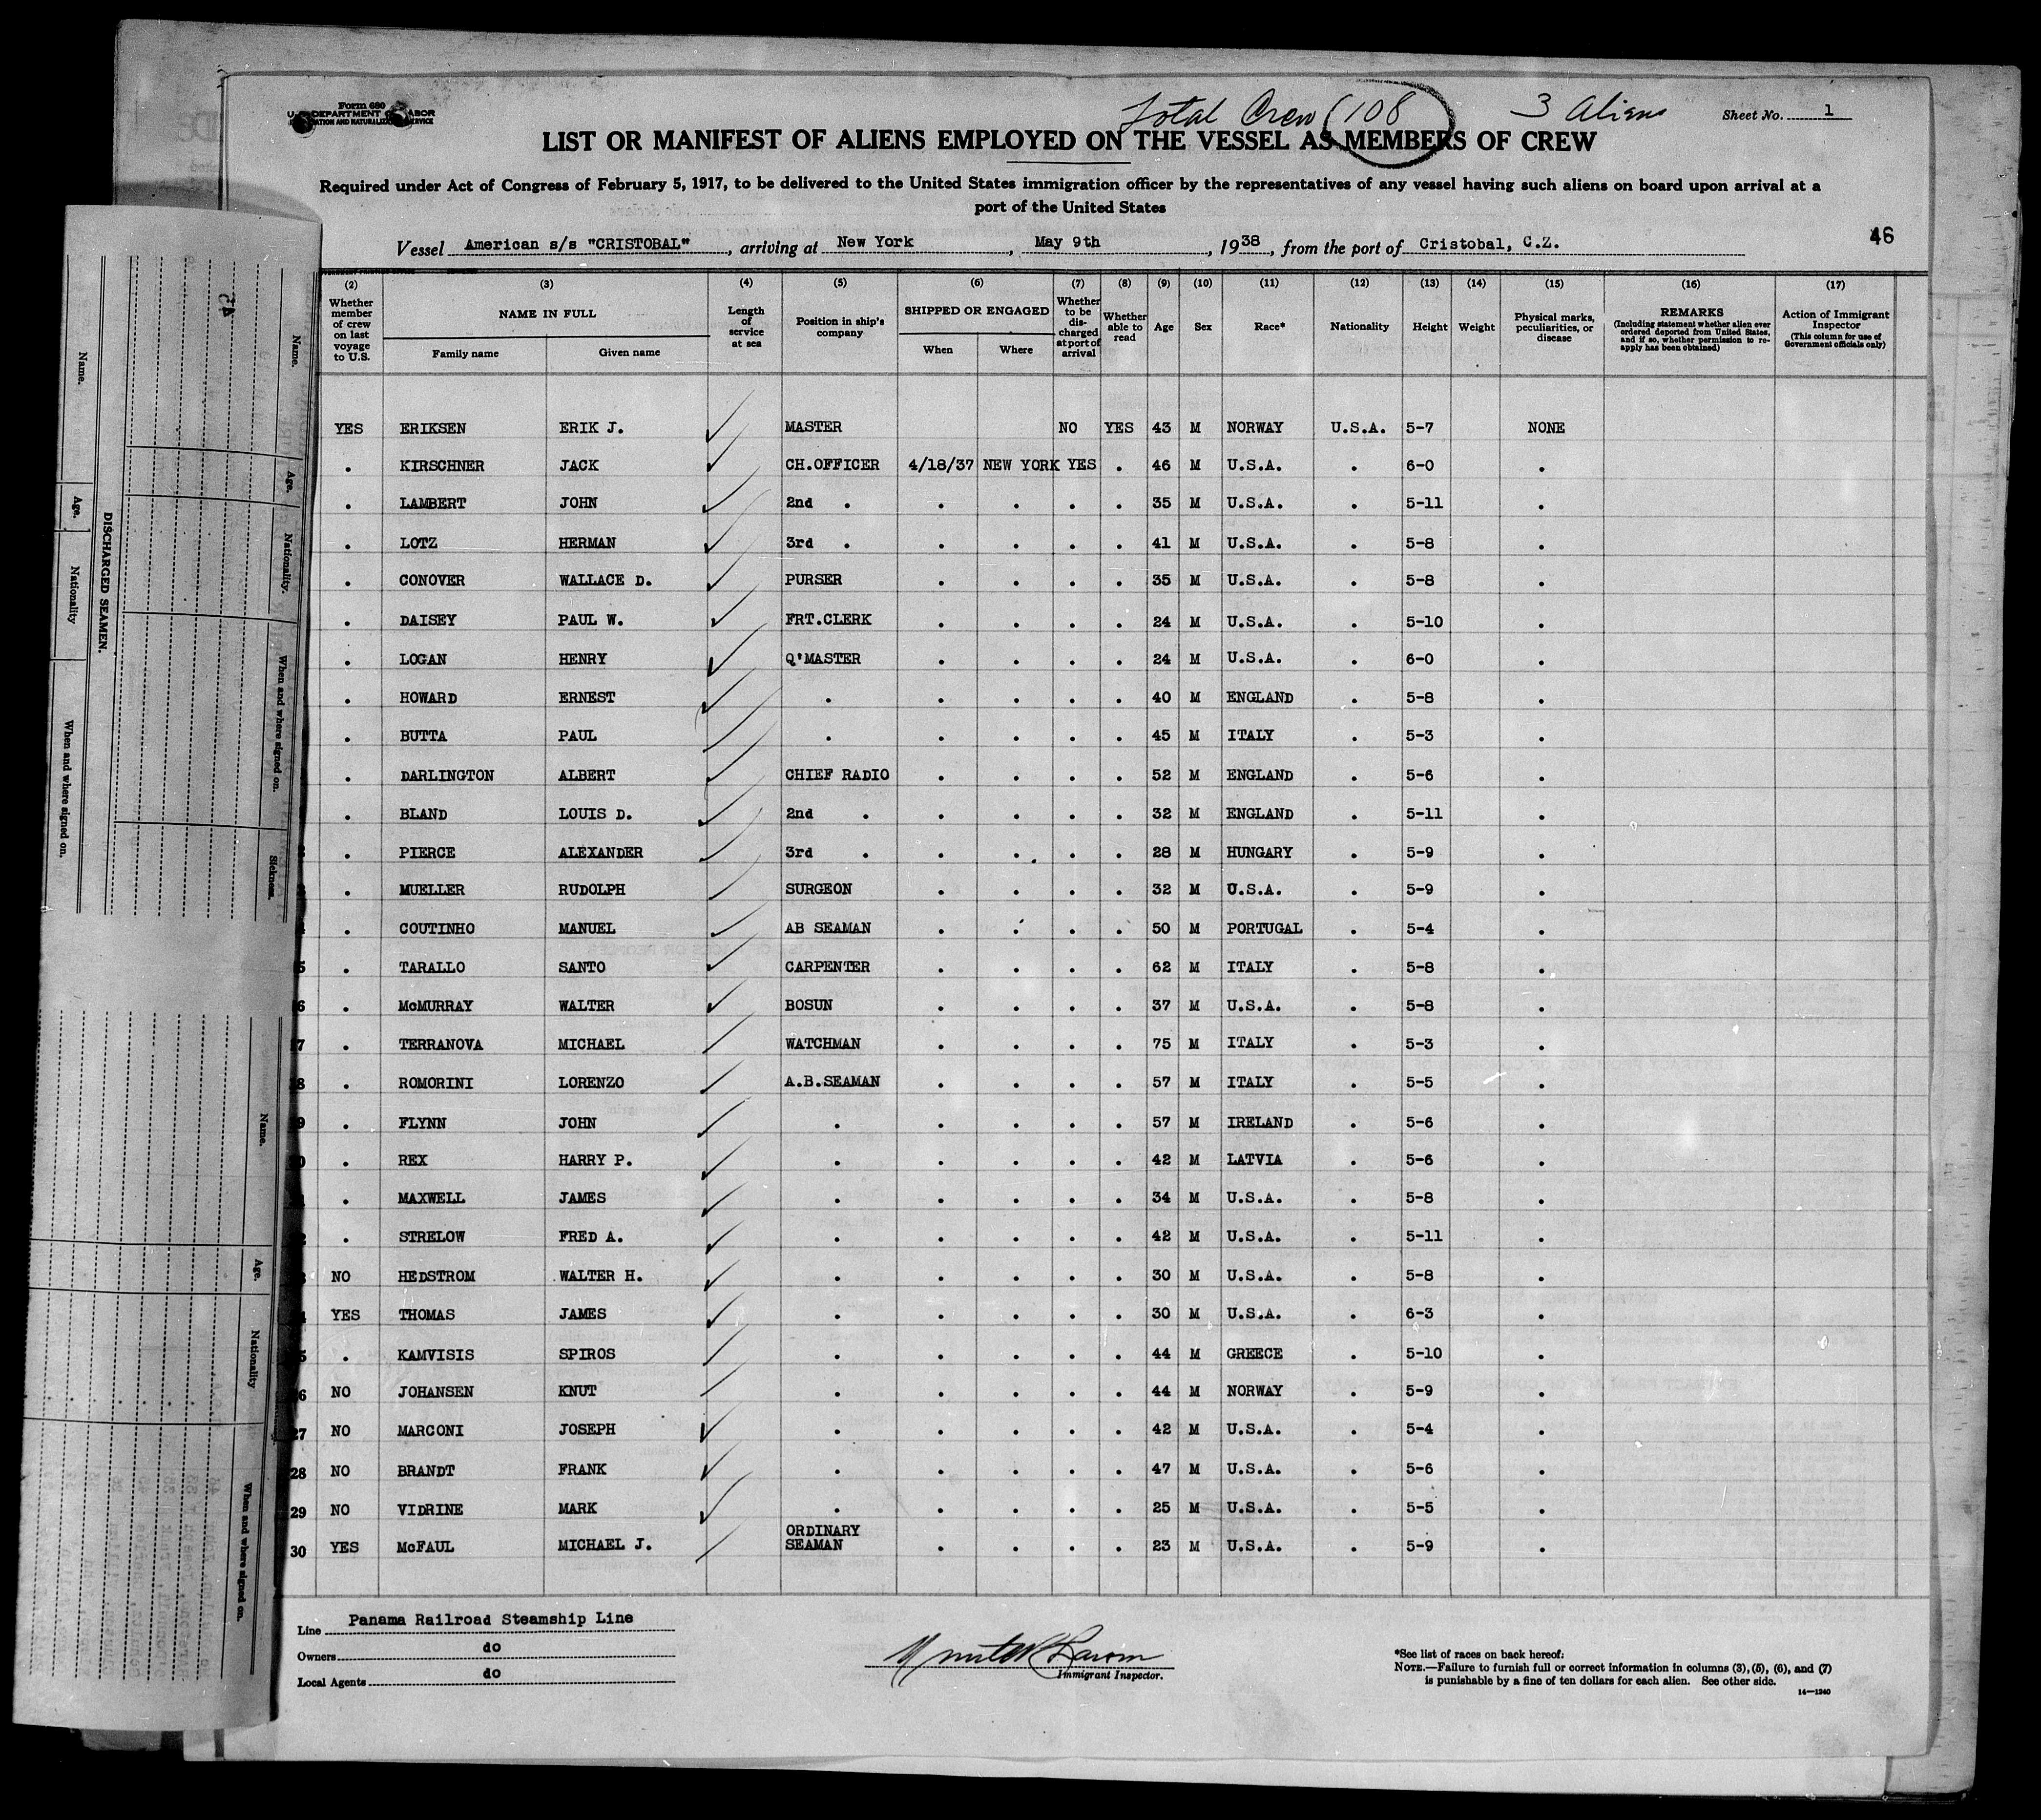 Form 680
U. S. DEPARTMENT OF LABOR
IMMIGRATION AND NATURALIZATION SERVICE
Total Crew (108 3 Aliens
Sheet No. 1
LIST OR MANIFEST OF ALIENS EMPLOYED ON THE VESSEL AS MEMBERS OF CREW
Required under Act of Congress of February 5, 1917, to be delivered to the United States immigration officer by the representatives of any vessel having such aliens on board upon arrival at a
port of the United States
46
Vessel American s/s "CRISTOBAL", arriving at New York, May 9th, 1938, from the port of Cristobal, C.Z.
(2) Whether member of crew on last voyage to U.S.
(3) NAME IN FULL
Family name Given name
(4) Length of service at sea
(5) Position in ship's company
(6) SHIPPED OR ENGAGED
When Where
(7) Whether to be discharged at port of arrival
(8) Whether able to read
(9) Age
(10) Sex
(11) Race*
(12) Nationality
(13) Height
(14) Weight
(15) Physical marks, peculiarities, or disease
(16) REMARKS (Including statement whether alien ever ordered deported from United States, and if so, whether permission to reapply has been obtained)
(17) Action of Immigrant Inspector (This column for use of Government officials only)
YES ERIKSEN ERIK J. MASTER NO YES 43 M NORWAY U.S.A. 5-7 NONE
. KIRSCHNER JACK CH.OFFICER 4/18/37 NEW YORK YES . 46 M U.S.A. . 6-0 .
. LAMBERT JOHN 2nd . . . . . 35 M U.S.A. . 5-11 .
. LOTZ HERMAN 3rd . . . . . 41 M U.S.A. . 5-8 .
. CONOVER WALLACE D. PURSER . . . . 35 M U.S.A. . 5-8 .
. DAISEY PAUL W. FRT.CLERK . . . . 24 M U.S.A. . 5-10 .
. LOGAN HENRY Q'MASTER . . . . 24 M U.S.A. . 6-0 .
. HOWARD ERNEST . . . . . 40 M ENGLAND . 5-8 .
. BUTTA PAUL . . . . . 45 M ITALY . 5-3 .
. DARLINGTON ALBERT CHIEF RADIO . . . . 52 M ENGLAND . 5-6 .
. BLAND LOUIS D. 2nd . . . . . 32 M ENGLAND . 5-11 .
. PIERCE ALEXANDER 3rd . . . . . 28 M HUNGARY . 5-9 .
. MUELLER RUDOLPH SURGEON . . . . 32 M U.S.A. . 5-9 .
. COUTINHO MANUEL AB SEAMAN . . . . 50 M PORTUGAL . 5-4 .
5 . TARALLO SANTO CARPENTER . . . . 62 M ITALY . 5-8 .
6 . McMURRAY WALTER BOSUN . . . . 37 M U.S.A. . 5-8 .
7 . TERRANOVA MICHAEL WATCHMAN . . . . 75 M ITALY . 5-3 .
8 . ROMORINI LORENZO A.B.SEAMAN . . . . 57 M ITALY . 5-5 .
9 . FLYNN JOHN . . . . . 57 M IRELAND . 5-6 .
0 . REX HARRY P. . . . . . 42 M LATVIA . 5-6 .
. MAXWELL JAMES . . . . . 34 M U.S.A. . 5-8 .
. STRELOW FRED A. . . . . . 42 M U.S.A. . 5-11 .
NO HEDSTROM WALTER H. . . . . . 30 M U.S.A. . 5-8 .
YES THOMAS JAMES . . . . . 30 M U.S.A. . 6-3 .
5 . KAMVISIS SPIROS . . . . . 44 M GREECE . 5-10 .
6 NO JOHANSEN KNUT . . . . . 44 M NORWAY . 5-9 .
27 NO MARCONI JOSEPH . . . . . 42 M U.S.A. . 5-4 .
28 NO BRANDT FRANK . . . . . 47 M U.S.A. . 5-6 .
29 NO VIDRINE MARK . . . . . 25 M U.S.A. . 5-5 .
30 YES McFAUL MICHAEL J. ORDINARY SEAMAN . . . . 23 M U.S.A. . 5-9 .
Line Panama Railroad Steamship Line
Owners do
Local Agents do
Immigrant Inspector.
*See list of races on back hereof.
NOTE.—Failure to furnish full or correct information in columns (3), (5), (6), and (7)
is punishable by a fine of ten dollars for each alien. See other side.
14—1240
DISCHARGED SEAMEN.
Name. Age. Nationality When and where signed on.
Name. Age. Nationality. When and where signed on. Sickness.
Name. Age. Nationality When and where signed on.